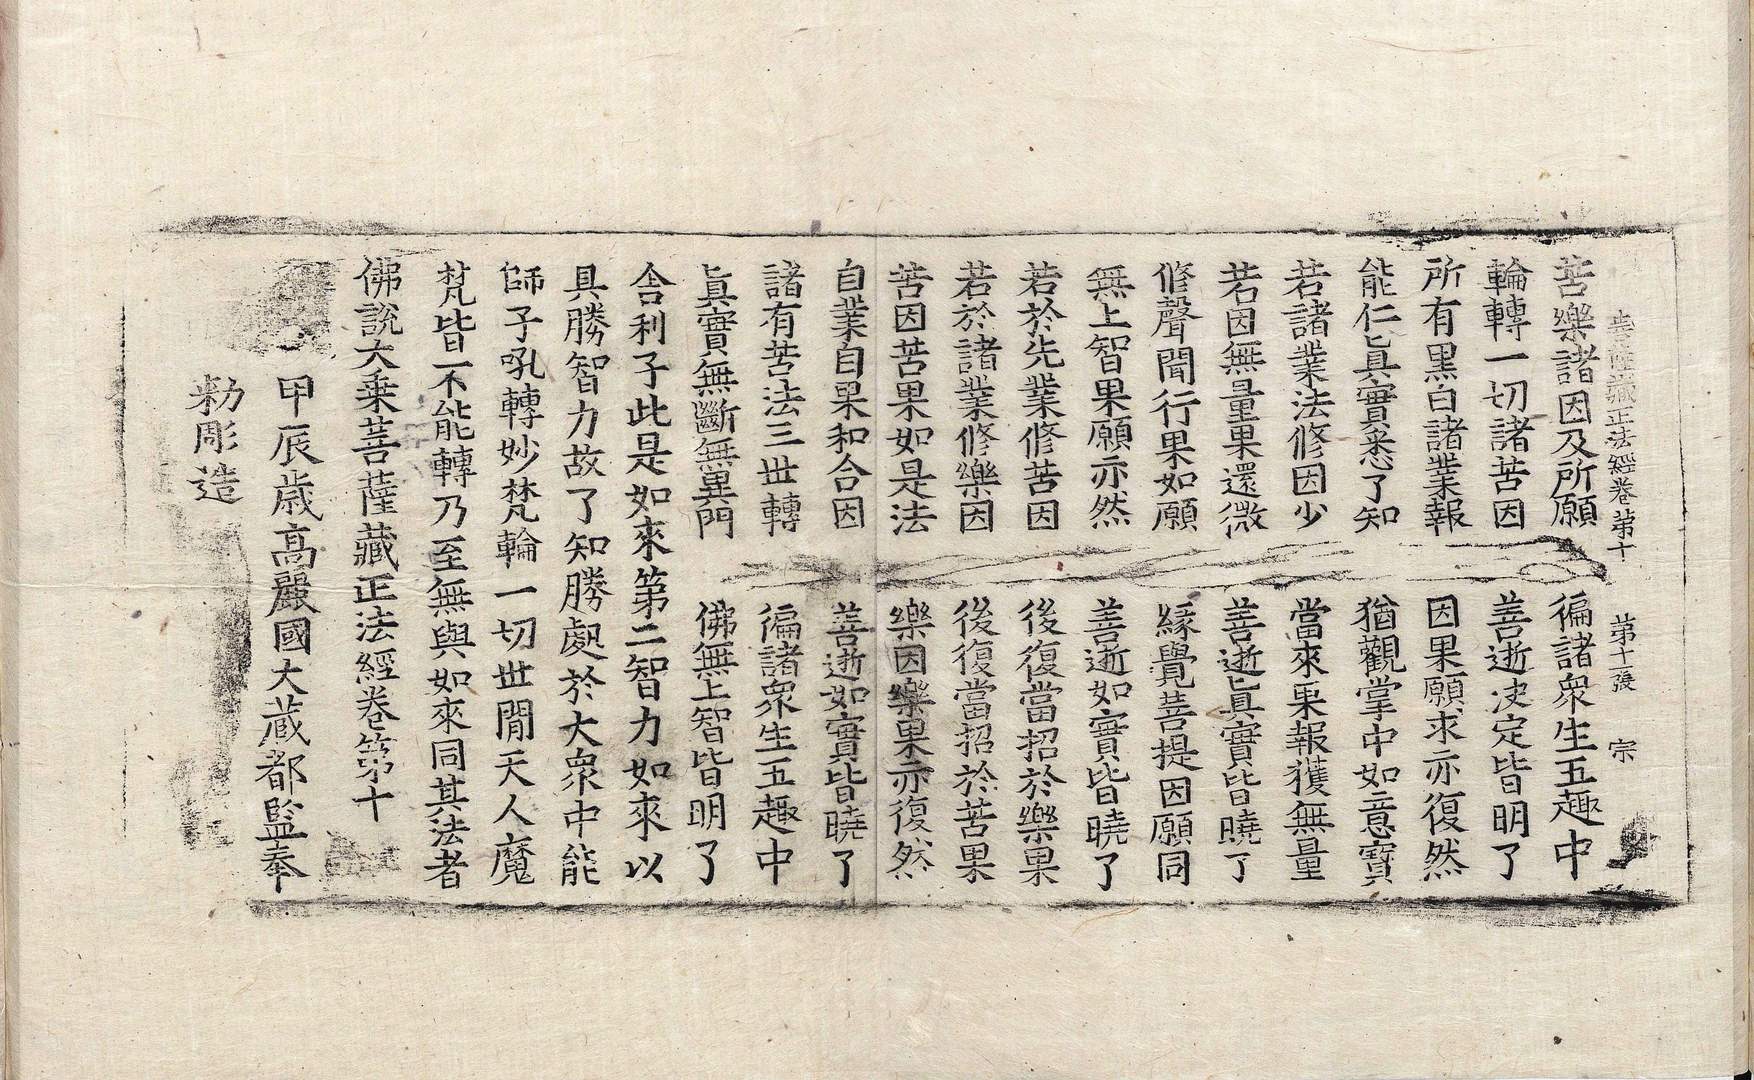 菩薩藏正法經卷第十 第十張 宗
苦樂諸因及所願 徧諸衆生五趣中
輪轉一切諸苦因 善逝決定皆明了
所有黑白諸業報 因果願求亦復然
能仁眞實悉了知 猶觀掌中如意寶
若諸業法修因少 當來果報獲無量
若因無量果還微 善逝眞實皆曉了
修聲聞行果如願 緣覺菩提因願同
無上智果願亦然 善逝如實皆曉了
若於先業修苦因 後復當招於樂果
若於諸業修樂因 後復當招於苦果
苦因苦果如是法 樂因樂果亦復然
自業自果和合因 善逝如實皆曉了
諸有苦法三世轉 徧諸衆生五趣中
眞實無斷無異門 佛無上智皆明了
舍利子此是如來第二智力如來以
具勝智力故了知勝處於大衆中能
師子吼轉妙梵輪一切世閒天人魔
梵皆不能轉乃至無與如來同其法者
佛說大乘菩薩藏正法經卷第十
甲辰歲高麗國大藏都監奉
勅彫造